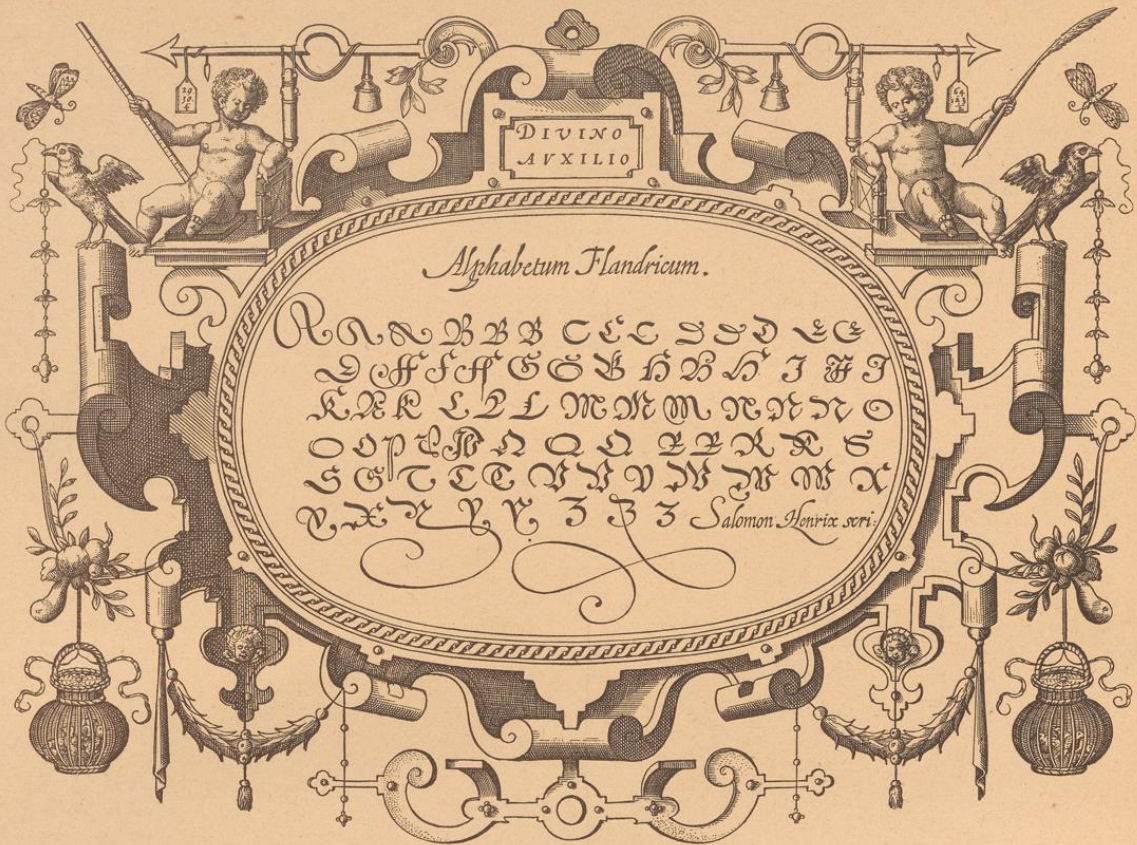 DIVINO
AVXILIO
Alphabetum Flandricum.
A A A B B B C C C D D D E E
E F F F G G G H H H I I I
K K K L L L M M M N N N O
O O P P P Q Q Q R R R R S
S S T T T V V V W W W X
X X Y Y Y Z Z Z Salomon Henrix scri: